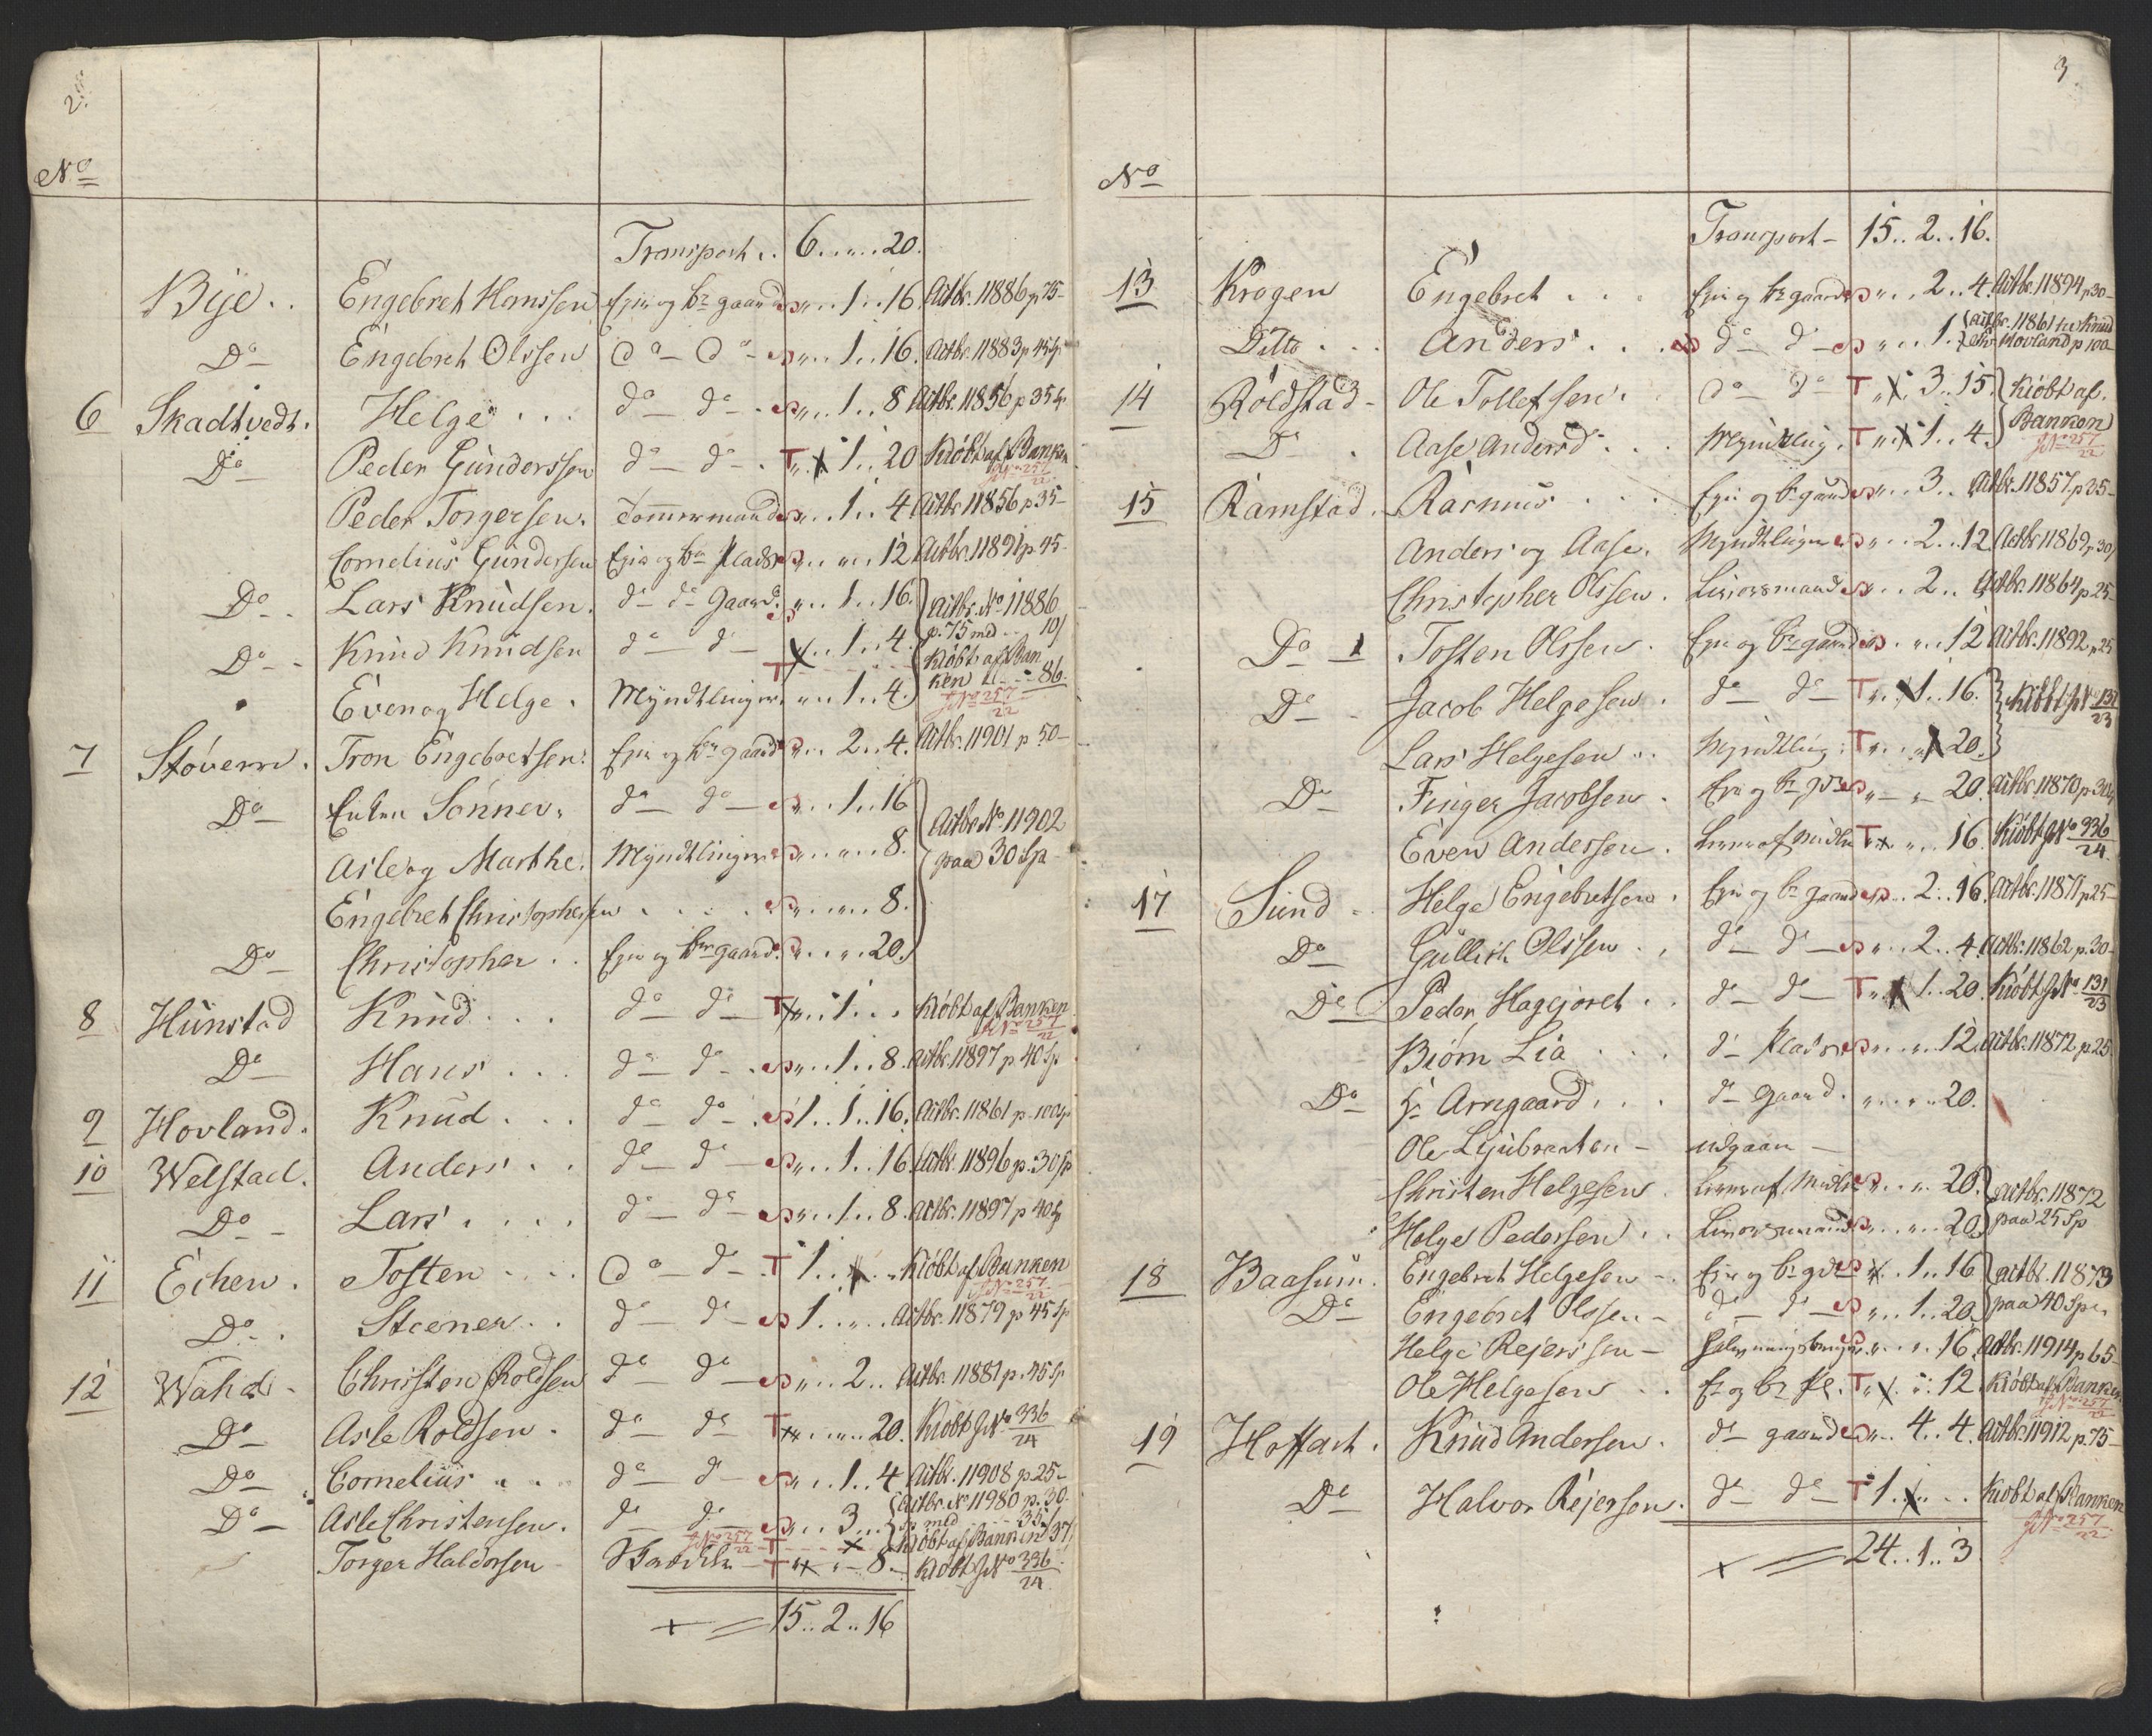 2.
No
Transport .. 6 .. „ .. 20.
Bije .. Engebret Hanssen Ejer og br gaard S „ .. 1 .. 16. Actbr. 11886 p 75 -
Do - Engebret Olssen do - do - S „ .. 1 .. 16. Actbr. 11883 p 45 Sp
6 Skadtvedt. Helge ... do - do - . S „ .. 1 .. 8 Actbr. 11856 p 35 Sp
Do - Peder Gundersen do - do - . T „ .. x 1 .. 20 Kiöbt af Banken
JNo 257/22
Peder Torgersen. Tømmermand S „ .. 1 .. 4 Actbr 11856 p 35 -
Cornelius Gundersen Ejer og br Plads S „ .. „ .. 12 Actbr. 11891 p. 45 -
Do - . Lars Knudsen. do - do Gaard. S „ .. 1 .. 16. } Actbr. No 11886
Do - - Knud Knudsen do - do - x .. 1 .. 4. p. 75 med .. 10/
T Kiöbt af Ban
Even og Helge. Myndtlinger. „ .. 1 .. 4. ken - - - 86.
JNo 257/22
7 Støveren. Tron Engebretsen. Ejer og br gaard S .. 2 .. 4. Actbr. 11901 p 50 -
Do - Enken Sönnev. do - do - S „ .. 1 .. 16 } Actbr No 11902
Asle og Marthe. Myndtlinger S „ .. „ .. 8. paa 30 Sp -
Engebret Christophersen .... S „ .. „ .. 8.
Do - Christopher .. Ejer og br gaard. S .. „ .. 20.
8 Hunstad Knud ... do - do T x „ .. 1 .. „ Kiöbt af Banken
JNo 257/22
Do - Hans ... do - do - . S „ .. 1 .. 8. Actbr. 11897 p 40 Sp
9 Hovland. Knud ... do - do - . S 1 .. 1 .. 16. Actbr. 11861 p. 100 Sp
10 Welstad. Anders .. do - do - S „ .. 1 .. 16. Actbr. 11896 p. 30 Sp
Do - - Lars .... do - do - S „ .. 1 .. 8. Actbr. 11897 p 40 Sp
11 Eichen. Tosten .... do - do - . T 1 .. x .. „ Kiöbt af Banken
JNo 257/22
Do - . Steener .. do - do - S 1 .. „ .. Actbr. 11879 p 45 Sp
12 Wahd - Christen Roldsen do - do - S „ .. 2 .. Actbr. 11881 p. 45 Sp
Do - Asle Roldsen. do - do T x „ .. „ .. 20. Kiöbt JNo 336/24
Do - Cornelius ... do - do - S „ .. 1 .. 4 Actbr. 11908 p 25 -
Do - Asle Christensen. do - do - S „ .. 3 .. { Actbr. No 11980 p. 30.
Sp med - - - 35/
JNo 257/22 T - - - - x - - Kiöbt af Banken 37/
Torger Haldorsen - T „ x „ - 8. - Kiöbt JNo 336/24
+ = 15 .. 2 .. 16
3.
No
Transport - 15 .. 2 .. 16.
13 Krogen Engebret ... Ejer og br gaard S „ .. 2 .. 4. Actbr. 11894 p 30 -
Ditto ... Anders ... do - do - S „ .. 1. { Actbr. 11861 til Knud
Hovland p 100 -
14 Röldstad - Ole Tollefsen. do do T „ x 3 .. 15. } Kiöbt af
Do . Aase Andersd ... Myndtling. T „ x 1 .. 4. Banken
JNo 257/22
15 Ramstad. Rasmus ... Ejer og br gaard S „ .. 3 .. Actbr. 11857. p 35 -
Anders og Aase. Myndtlinger S „ .. 2 .. 12 Actbr 11869 p 30/
Christopher Olssen. S „ .. 2 .. Actbr. 11864 p 25 -
Do - 1 Tosten Olssen. Ejer og br gaard S .. „ .. 12 Actbr. 11892 p 25
Do - . Jacob Helgesen. do - do - T „ .. x 1 .. 16. } Kiöbt JNo 131/23
Lars Helgesen .. Myndtling. T „ .. „ x 20.
Do - Finger Jacobsen. Ejer og br grd S „ - „ - 20. Actbr. 11870 p 30 Sp
Even Andersen. T x „ .. 16. Kiöbt JNo 336/24
17 Sund - Helge Engebretsen. Ejer og br gaard S „ .. 2 .. 16. Actbr. 11871 p 25 -
Do - Gullich Olssen .. do - do - S „ .. 2 .. 4. Actbr. 11862 p. 30 -
Do - Peder Hagejoret .. do - do - T „ x 1 .. 20. Kiöbt JNo 131/23
Biörn Lia ... do - Plads S „ .. „ .. 12. Actbr. 11872 p 25
Do - Hr Arngaard ... do - gaard. „ .. „ .. 20.
Ole Ljubraaten - udgaar -
Christen Helgesen. S „ .. „ .. 20. } Actbr. 11872
Helge Pedersen .. S „ .. „ .. 20. paa 25 Sp
18 Baasum. Engebret Helgesen - Ejer og br grd S x .. 1 .. 16 } Actbr. 11873
Do - Engebret Olssen - do - do - S „ .. 1 .. 20. paa 40 Sp
Helge Rejerssen - S „ .. „ .. 16. Actbr. 11914 p 65 -
Ole Helgesen .. Er og br Pl. T „ x .. „ .. 12. Kiöbt af Banken
JNo 257/22
19 Hoffart. Knud Andersen. do - gaard S „ .. 4 .. 4. Actbr. 11912 p. 75 -
Do - Halvor Rejersen. do - do - T 1 .. x .. . Kiöbt af Banken
JNo 257/22
+ = 24 .. 1 .. 3